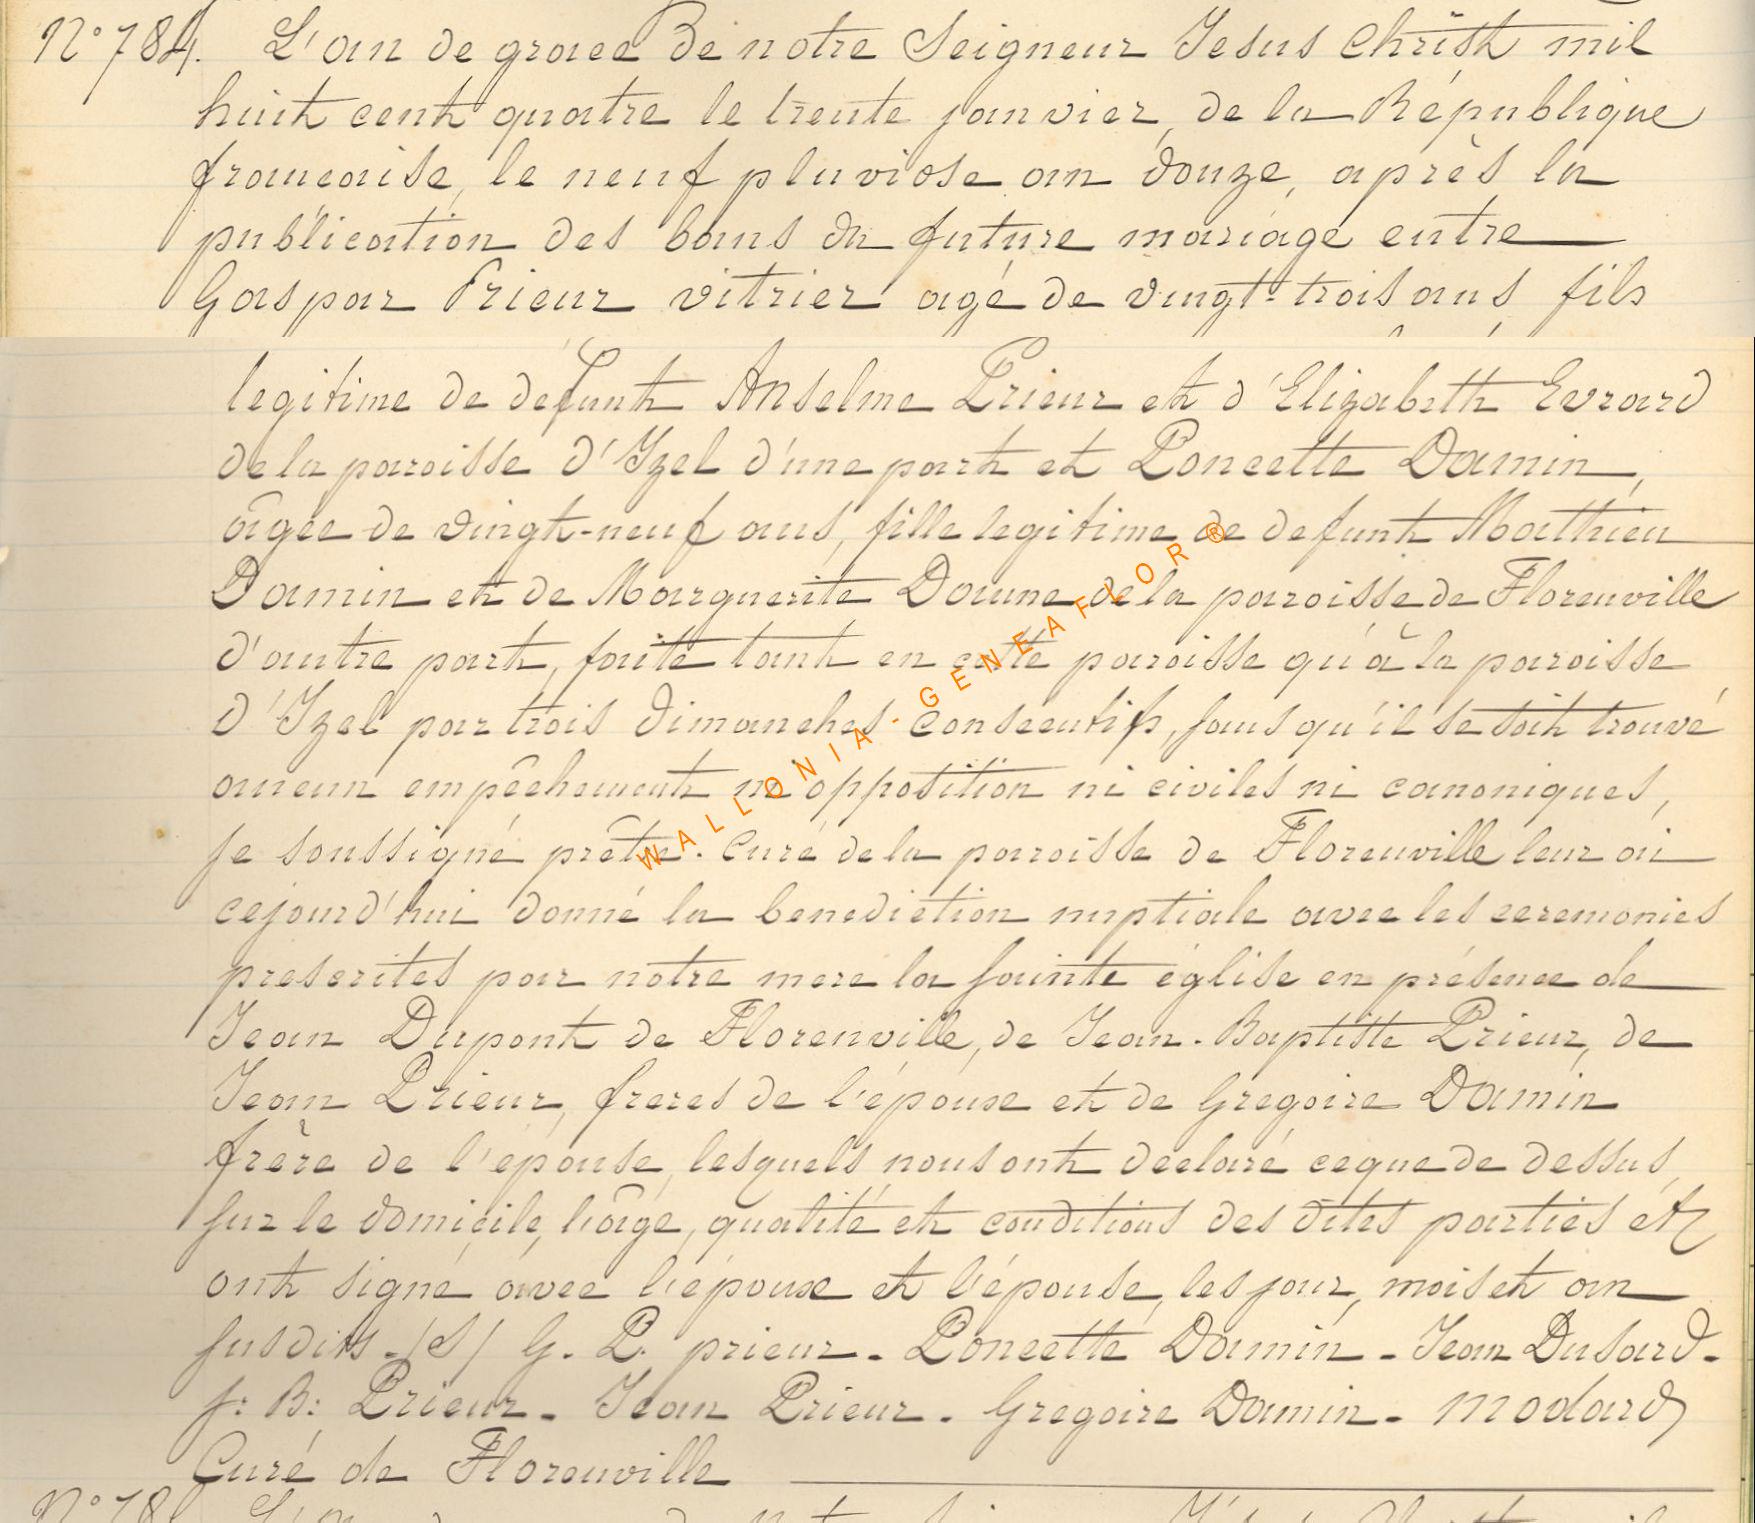 N° 784. L'an de grace De notre Seigneur Jesus Christ mil
huit cent quatre le trente janvier, de la République
francaise, le neuf pluviose an douze, après la
publication des bans du future mariage entre
Gaspar Prieur vitrier agé de vingt-trois ans, fils
legitime de defunt Anselme Prieur et d'Elizabeth Evrard
de la paroisse d'Izel d'une part et Poncette Damin,
âgée de vingt-neuf ans, fille legitime de defunt Matthieu
Damin et de Marguerite Daune de la paroisse de Florenville
d'autre part, faite tant en cette paroisse qu'à la paroisse
d'Izel par trois dimanches consecutifs, sans qu'il se soit trouvé
aucun empêchement ni opposition ni civiles ni canoniques,
je soussigné prêtre. Curé de la paroisse de Florenville leur ai
cejourd'hui donné la benediction nuptiale avec les ceremonies
prescrites par notre mere la sainte église en présence de
Jean Dupont de Florenville, de Jean-Baptiste Prieur, de
Jean Prieur, freres de l'époux et de Gregoire Damin
frère de l'épouse, lesquels nous ont declaré ce que de dessus,
sur le domicile, l'âge, qualité et conditions des dites parties et
ont signé avec l'époux et l'épouse, les jour, mois et an
susdits. (S) G. P. prieur. Poncette Damin - Jean Dusard.
J: B: Prieur. Jean Prieur. Gregoire Damin. Modard
Curé de Florenville
N° 78
WALLONIA-GENEAFLOR ®